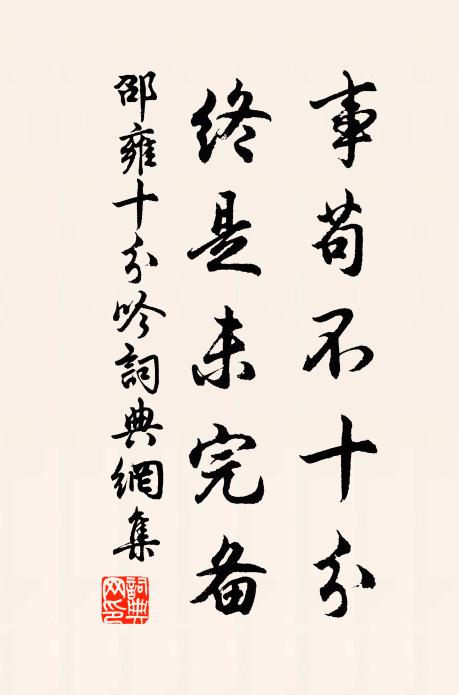 事苟不十分
终是未完备
邵雍十分吟詞典網集
詞典网印